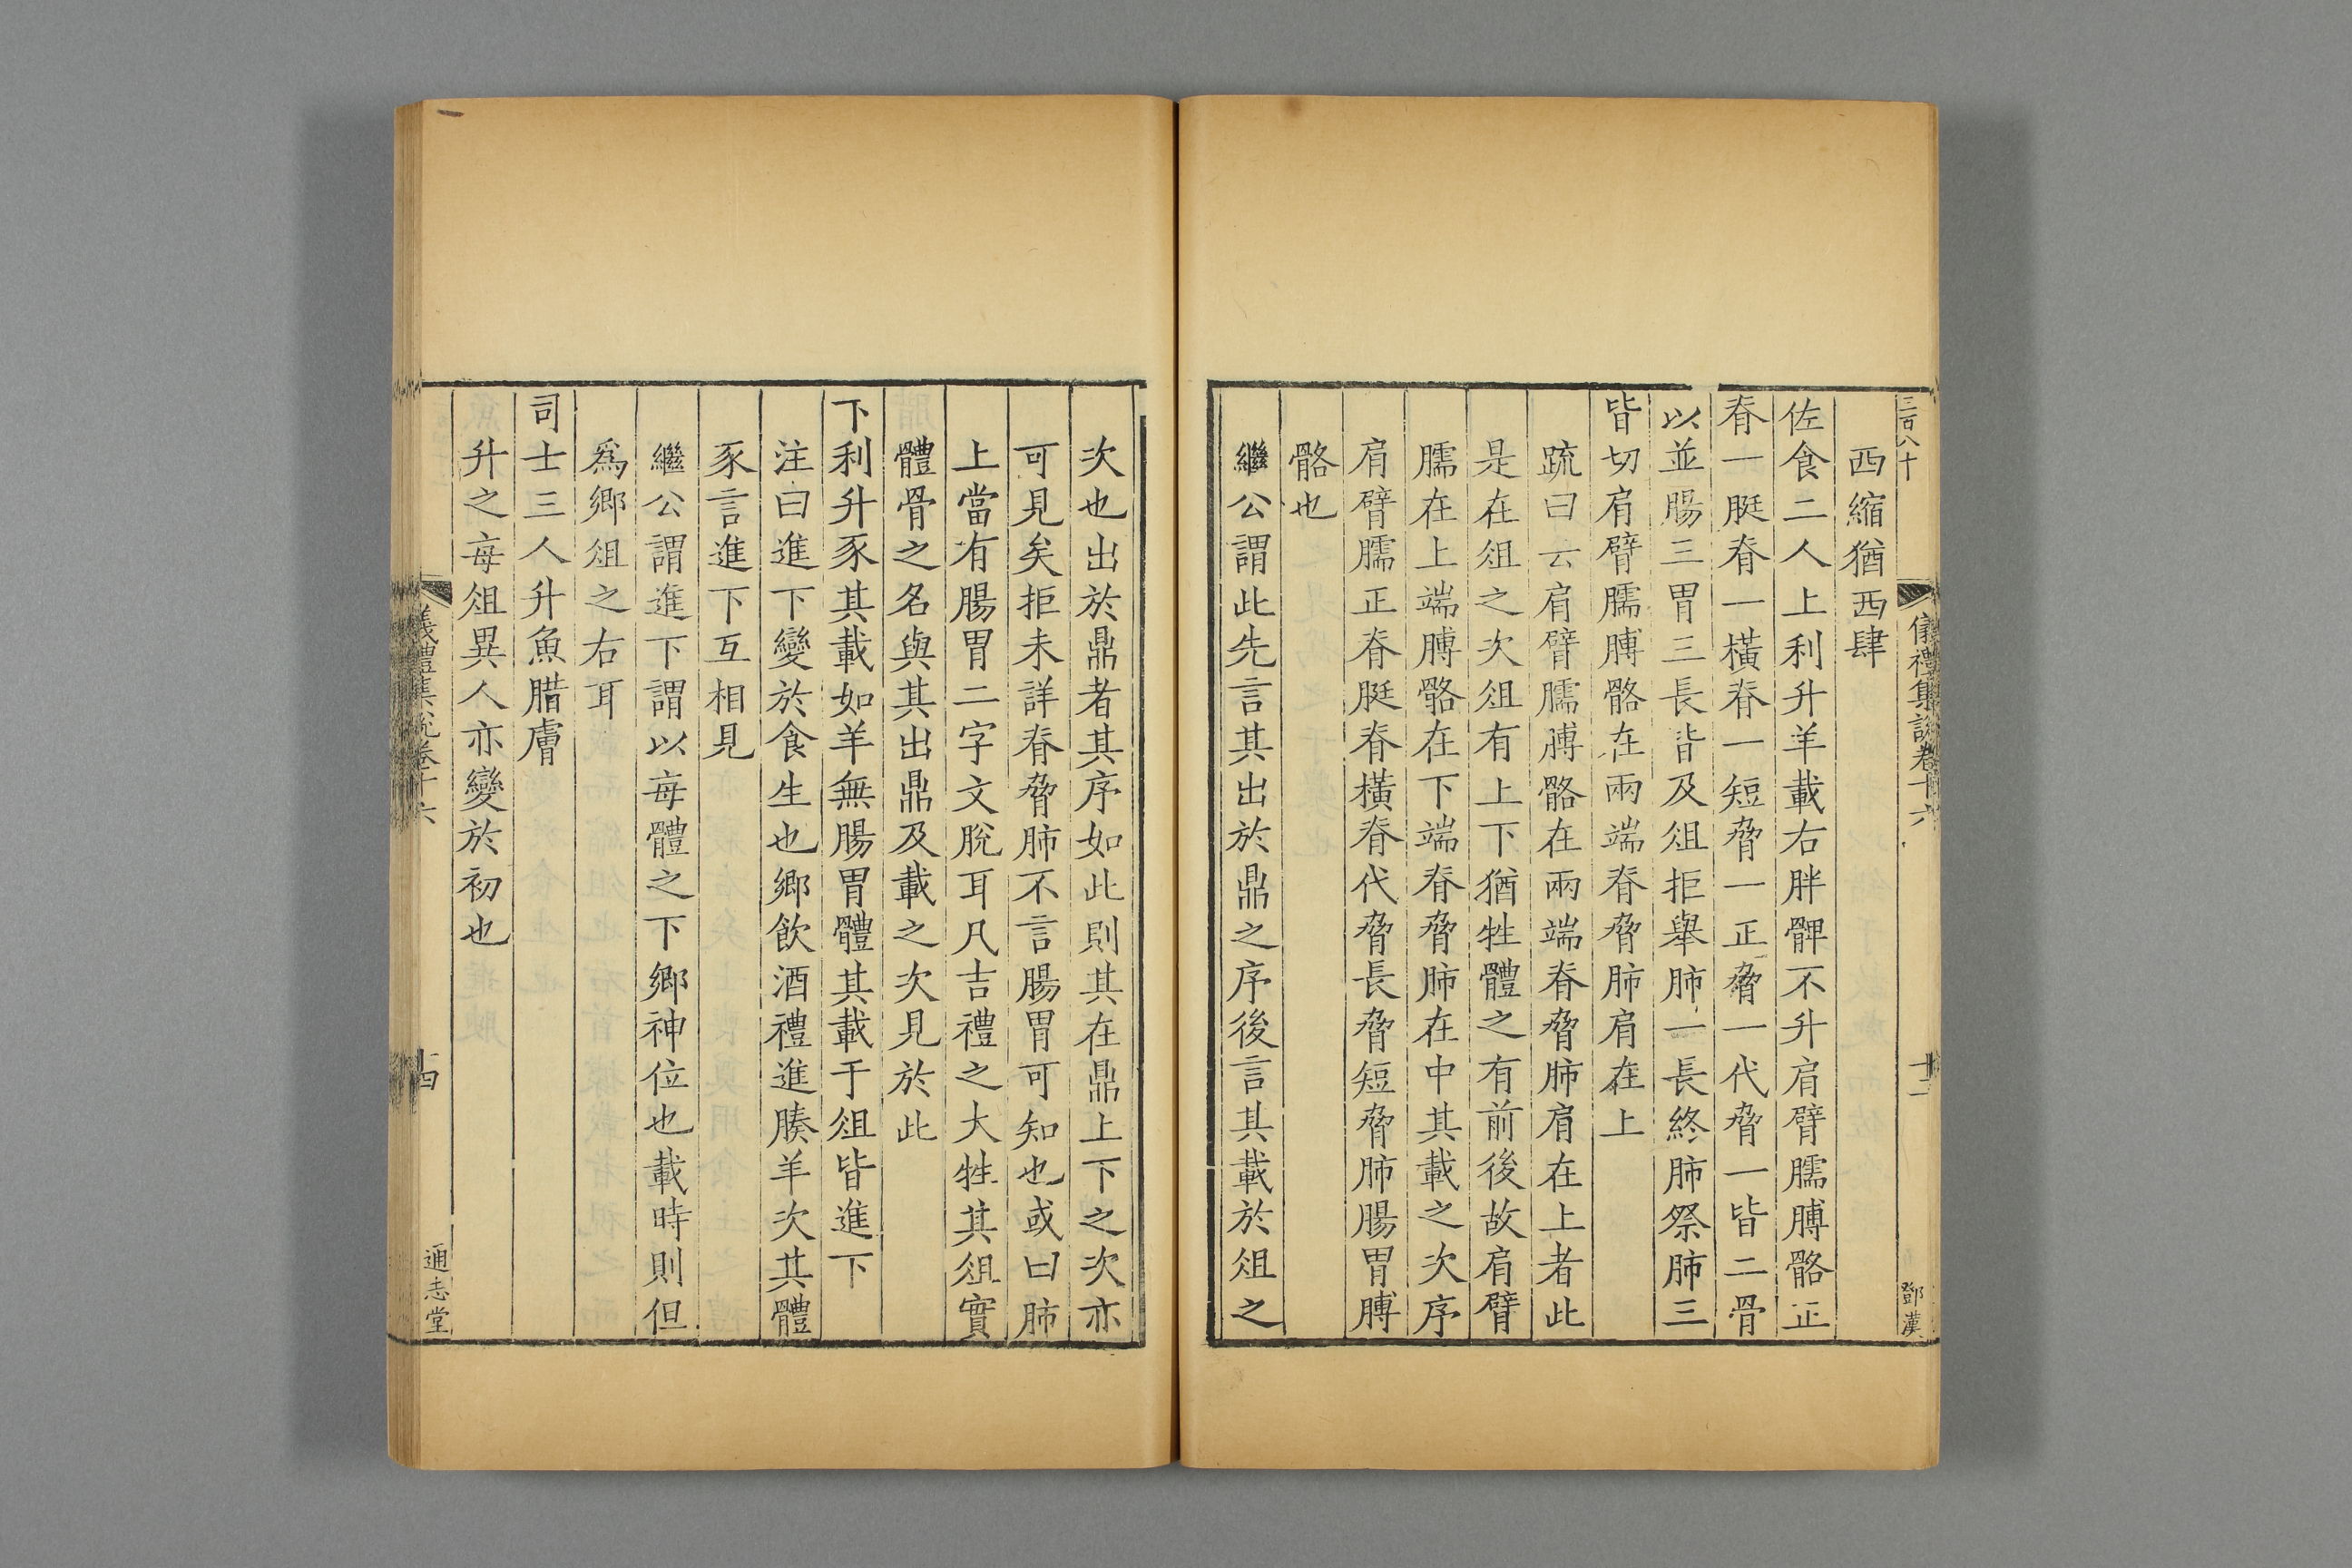 三百八十
儀禮集說卷十六
十三
鄧漢
西縮猶西肆
佐食二人上利升羊載右胖髀不升肩臂臑膊骼正
脊一脡脊一橫脊一短脅一正脅一代脅一皆二骨
以並腸三胃三長皆及俎拒舉肺一長終肺祭肺三
皆切肩臂臑膊骼在兩端脊脅肺肩在上
疏曰云肩臂臑膊骼在兩端脊脅肺肩在上者此
是在俎之次俎有上下猶牲體之有前後故肩臂
臑在上端膊骼在下端脊脅肺在中其載之次序
肩臂臑正脊脡脊橫脊代脅長脅短脅肺腸胃膊
骼也
繼公謂此先言其出於鼎之序後言其載於俎之
次也出於鼎者其序如此則其在鼎上下之次亦
可見矣拒未詳脊脅肺不言腸胃可知也或曰肺
上當有腸胃二字文脫耳凡吉禮之大牲其俎實
體骨之名與其出鼎及載之次見於此
下利升豕其載如羊無腸胃體其載于俎皆進下
注曰進下變於食生也鄉飲酒禮進腠羊次其體
豕言進下互相見
繼公謂進下謂以每體之下鄉神位也載時則但
爲鄉俎之右耳
司士三人升魚腊膚
升之每俎異人亦變於初也
儀禮集說卷十六
十四
通志堂